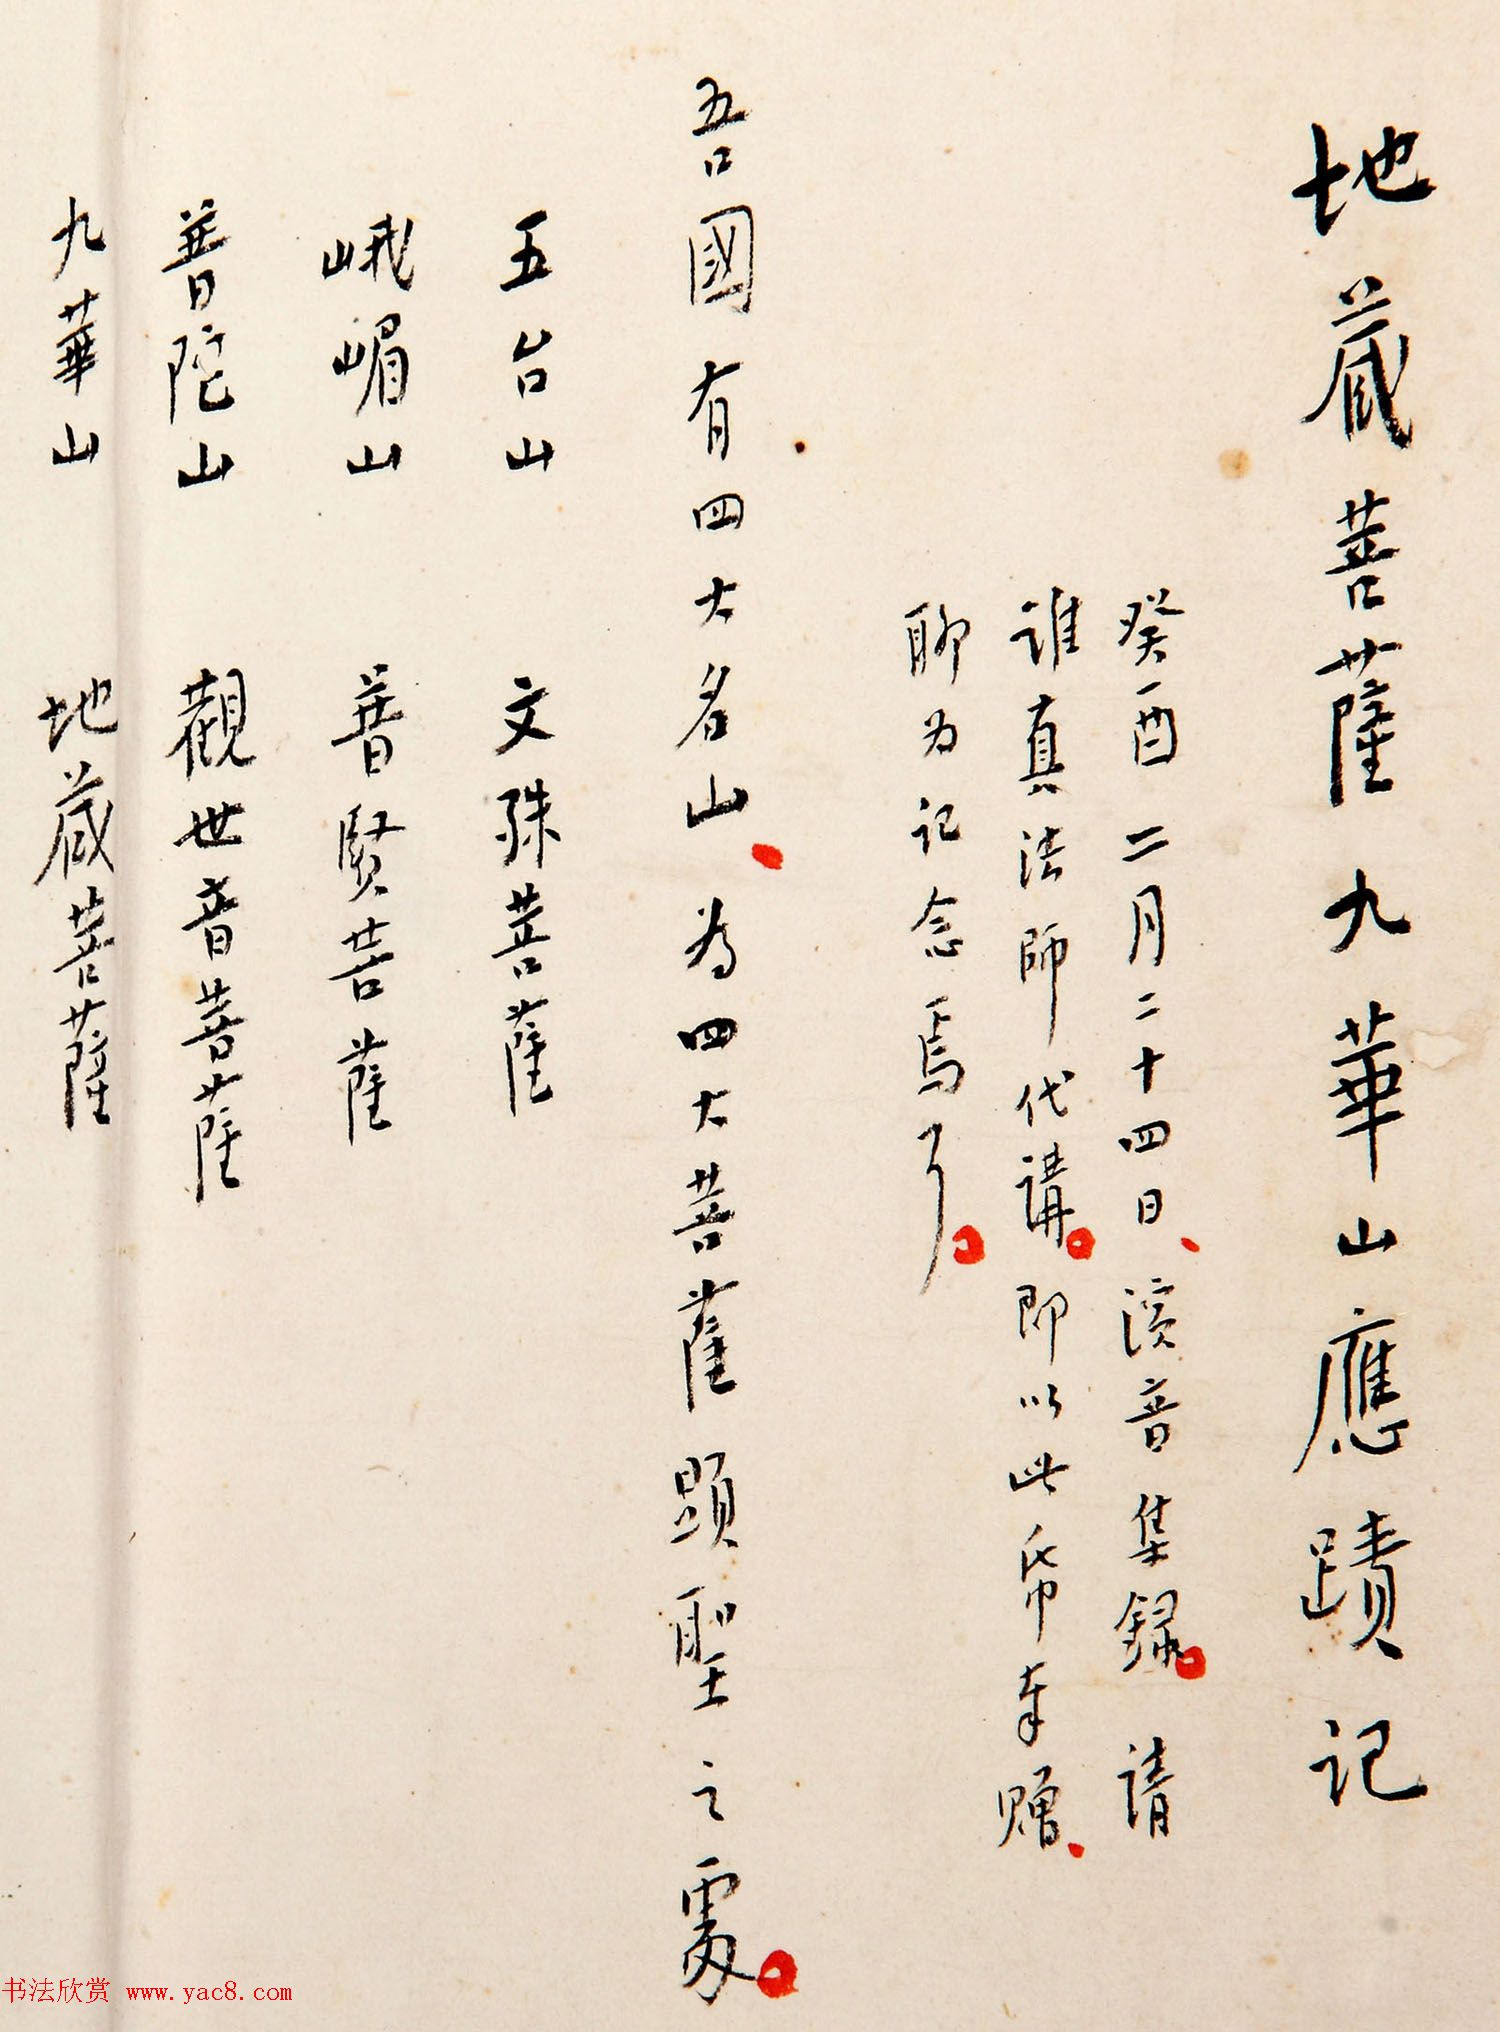 地藏菩薩九華山應蹟記
癸酉二月二十四日、演音集錄。請
誰真法師代講。即以此帋奉贈、
聊为記念焉耳。
吾國有四大名山、為四大菩薩顕聖之處。
五台山 文殊菩薩
峨嵋山 普賢菩薩
普陀山 觀世音菩薩
九華山 地藏菩薩
书法欣赏 www.yac8.com